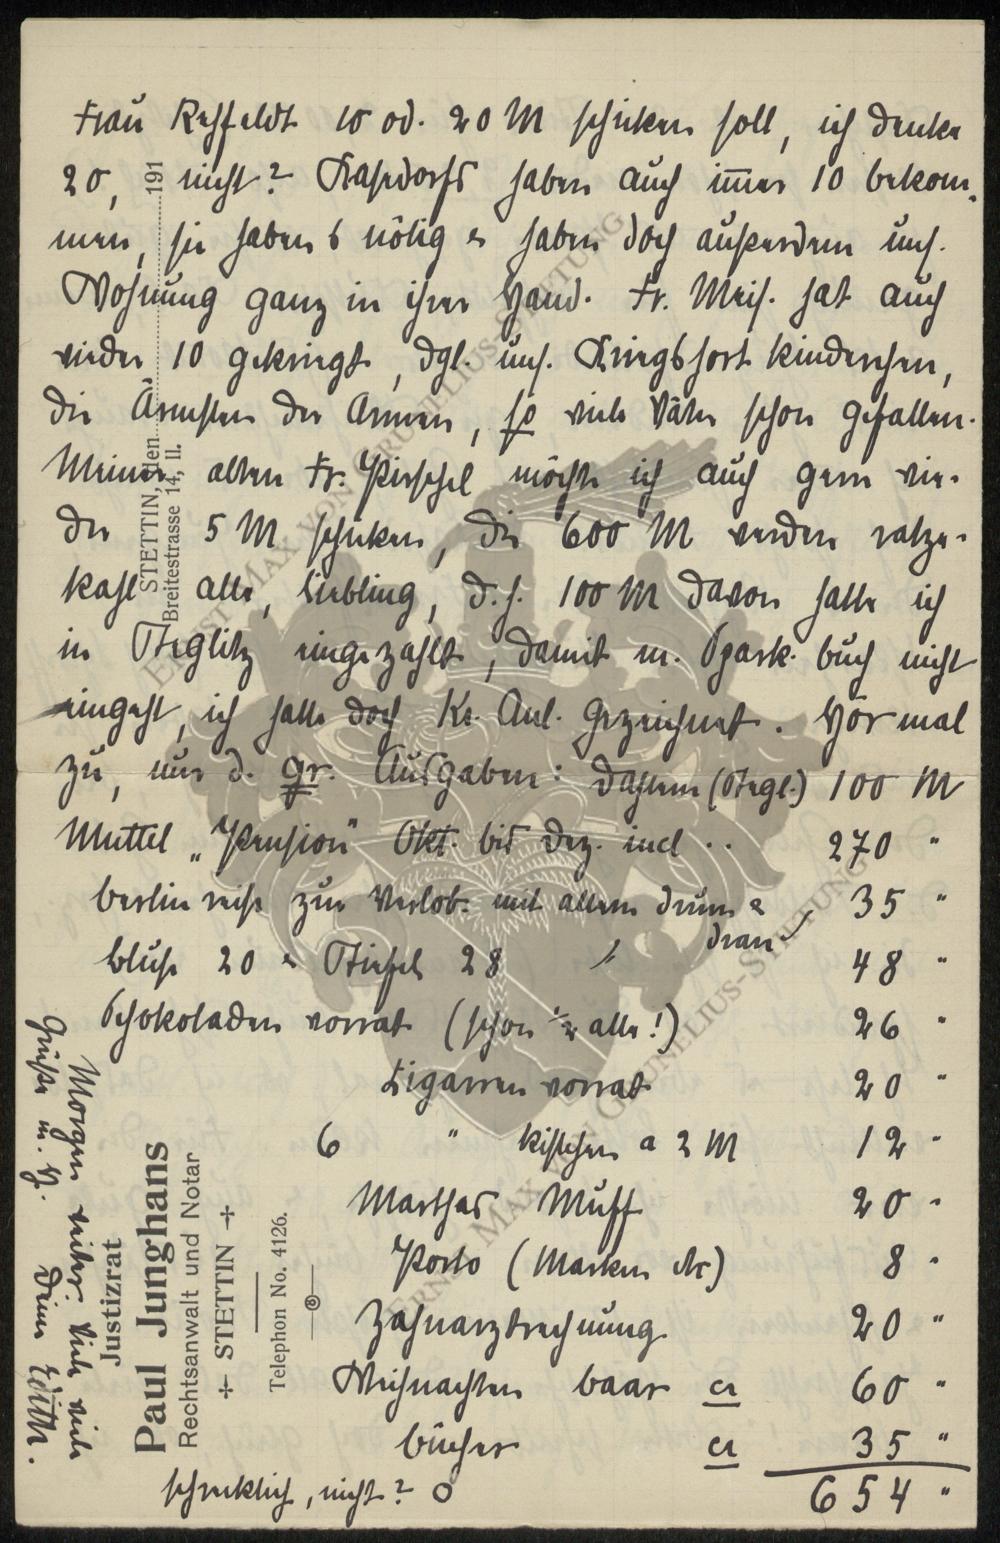 Frau Rehfeldt 10 od. 20 M schicken soll, ich denke
20, nicht? Rasdorfs haben auch im̅er 10 bekom¬
men, sie haben's nötig u haben doch außerdem uns.
Wohnung ganz in ihrer Hand. Fr. Meis. hat auch
wieder 10 gekriegt, dgl. uns. Kriegshort kinderchen,
die Ärmsten der Armen, so viele Väter schon gefallen.
Meiner alten Fr. Pirschel möcht ich auch gern wie¬
der 5 M schicken, die 600 M werden ratze¬
kahl alle, Liebling, d. h. 100 M davon hatte ich
in Steglitz eingezahlt, damit m. Spark. buch nicht
eingeht, ich hatte doch Kr. Anl. gezeichnet. Hör mal
zu, nur d. gr. Ausgaben: Dahlem (Stegl.) 100 M
Muttel „Pension" Okt. bis Dez. incl .. 270 "
Berlin reise zur Verlob. mit allem drum u dran 35 "
Bluse 20 u Stiefel 28 48 "
Schokoladen vorrat (schon ½ alle!) 26 "
Zigarren vorrat 20 "
6 " kistchen a 2 M 12 "
Marthas Muff 20 "
Porto (Marken etc) 8 "
Zahnarztrechnung 20 "
Weihnachten baar ca 60 "
Bücher ca 35 "
654 "
schrecklich, nicht? O
Morgen weiter. Viele viele
Grüße u. K. Deine Edith.
STETTIN, den 191
Breitestrasse 14, II.
Justizrat
Paul Junghans
Rechtsanwalt und Notar
STETTIN
Telephon No. 4126.
ERNST MAX VON GRUNELIUS-STIFTUNG
ERNST MAX VON GRUNELIUS-STIFTUNG